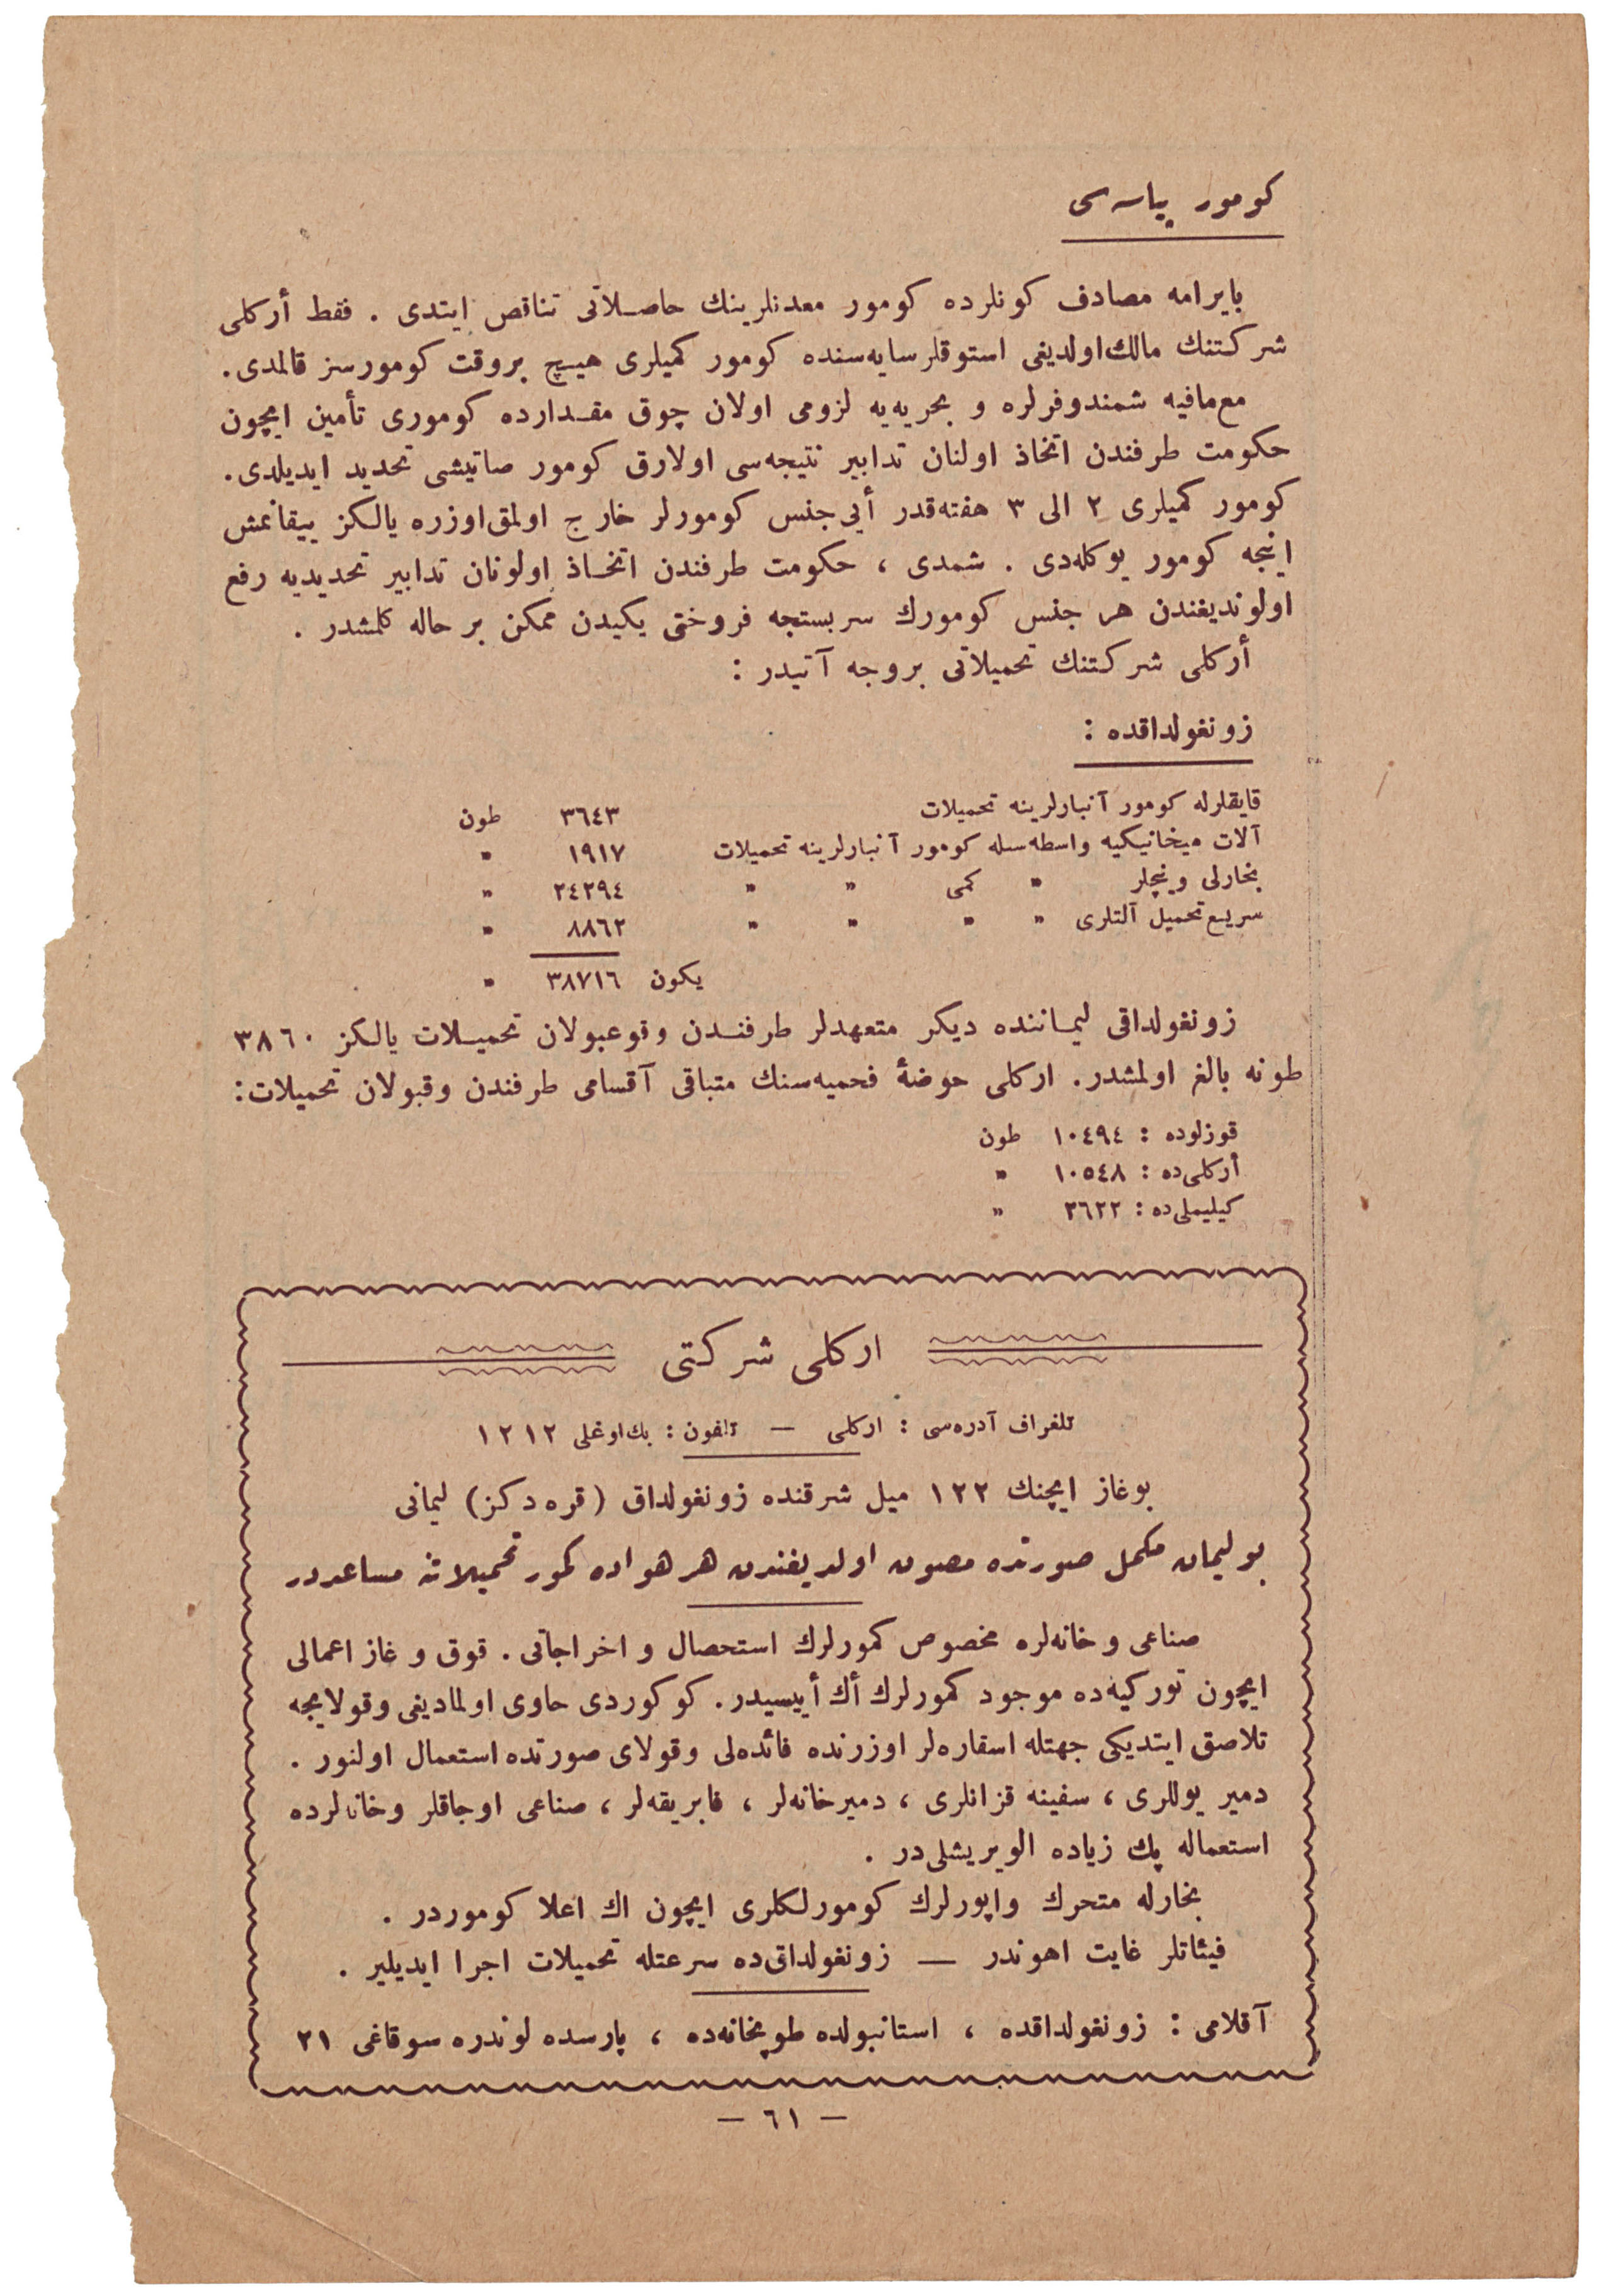 كومور پیاسه‌سی
بایرامه مصادف كونلرده كومور معدنلرینك حاصلاتی تناقص ایتدی . فقط أركلی
شركتنك مالك اولدیغی استوقلر سایه‌سنده كومور كمیلری هیچ بروقت كومورسز قالمدی .
مع‌مافیه شمندوفرلره و بحریه‌یه لزومی اولان چوق مقدارده كوموری تأمین ایچون
حكومت طرفندن اتخاذ اولنان تدابیر نتیجه‌سی اولارق كومور صاتیشی تحدید ایدیلدی .
كومور كمیلری ٢ الی ٣ هفته‌قدر أیی جنس كومورلر خارج اولمق اوزره یالكز ییقانمش
اینجه كومور یوكله‌دی . شمدی ، حكومت طرفندن اتخاذ اولونان تدابیر تحدیدیه رفع
اولوندیغندن هر جنس كومورك سربستجه فروختی یكیدن ممكن بر حاله كلمشدر .
أركلی شركتنك تحمیلاتی بروجه آتیدر :
زونغولداقده :
قایقلرله كومور آنبارلرینه تحمیلات ٣٦٤٣ طون
آلات میخانیكیه واسطه‌سله كومور آنبارلرینه تحمیلات ١٩١٧ »
بخارلی وینچلر » كمی » » ٢٤٢٩٤ »
سریع تحمیل آلتلری » » » » ٨٨٦٢ »
یكون ٣٨٧١٦ »
زونغولداقی لیماننده دیكر متعهدلر طرفندن وقوعبولان تحمیلات یالكز ٣٨٦٠
طونه بالغ اولمشدر. اركلی حوضهٔ فحمیه‌سنك متباقی آقسامی طرفندن وقبولان تحمیلات :
قوزلوده : ١٠٤٩٤ طون
أركلی‌ده : ١٠٥٤٨ »
كیلیملی‌ده : ٢٦٢٢ »
اركلی شركتی
تلغراف آدره‌سی : اركلی — تلفون : بك‌اوغلی ١٢١٢
بوغاز ایچنك ١٢٢ میل شرقنده زونغولداق (قره دكز) لیمانی
بو لیمان مكمل صورتده مصون اولدیغندن هر هواده كمور تحمیلاتنه مساعددر
صناعی و خانه‌لره مخصوص كمورلرك استحصال و اخراجاتی . قوق و غاز اعمالی
ایچون توركیه‌ده موجود كمورلرك أك أییسیدر. كوكوردی حاوی اولمادیغی وقولایجه
تلاصق ایتدیكی جهتله اسقاره‌لر اوزرنده فائده‌لی وقولای صورتده استعمال اولنور .
دمیر یوللری ، سفینه قزانلری ، دمیرخانه‌لر ، فابریقه‌لر ، صناعی اوجاقلر وخانه‌لرده
استعماله پك زیاده الویریشلی‌در .
بخارله متحرك واپورلرك كومورلكلری ایچون اك اعلا كوموردر .
فیئاتلر غایت اهوندر — زونغولداق‌ده سرعتله تحمیلات اجرا ایدیلیر .
آقلامی : زونغولداقده ، استانبولده طوپخانه‌ده ، پارسده لوندره سوقاغی ٢١
— ٦١ —